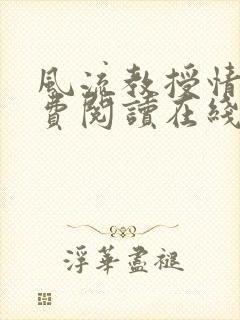 風流教授情
費閱讀在綫
浮華盡褪